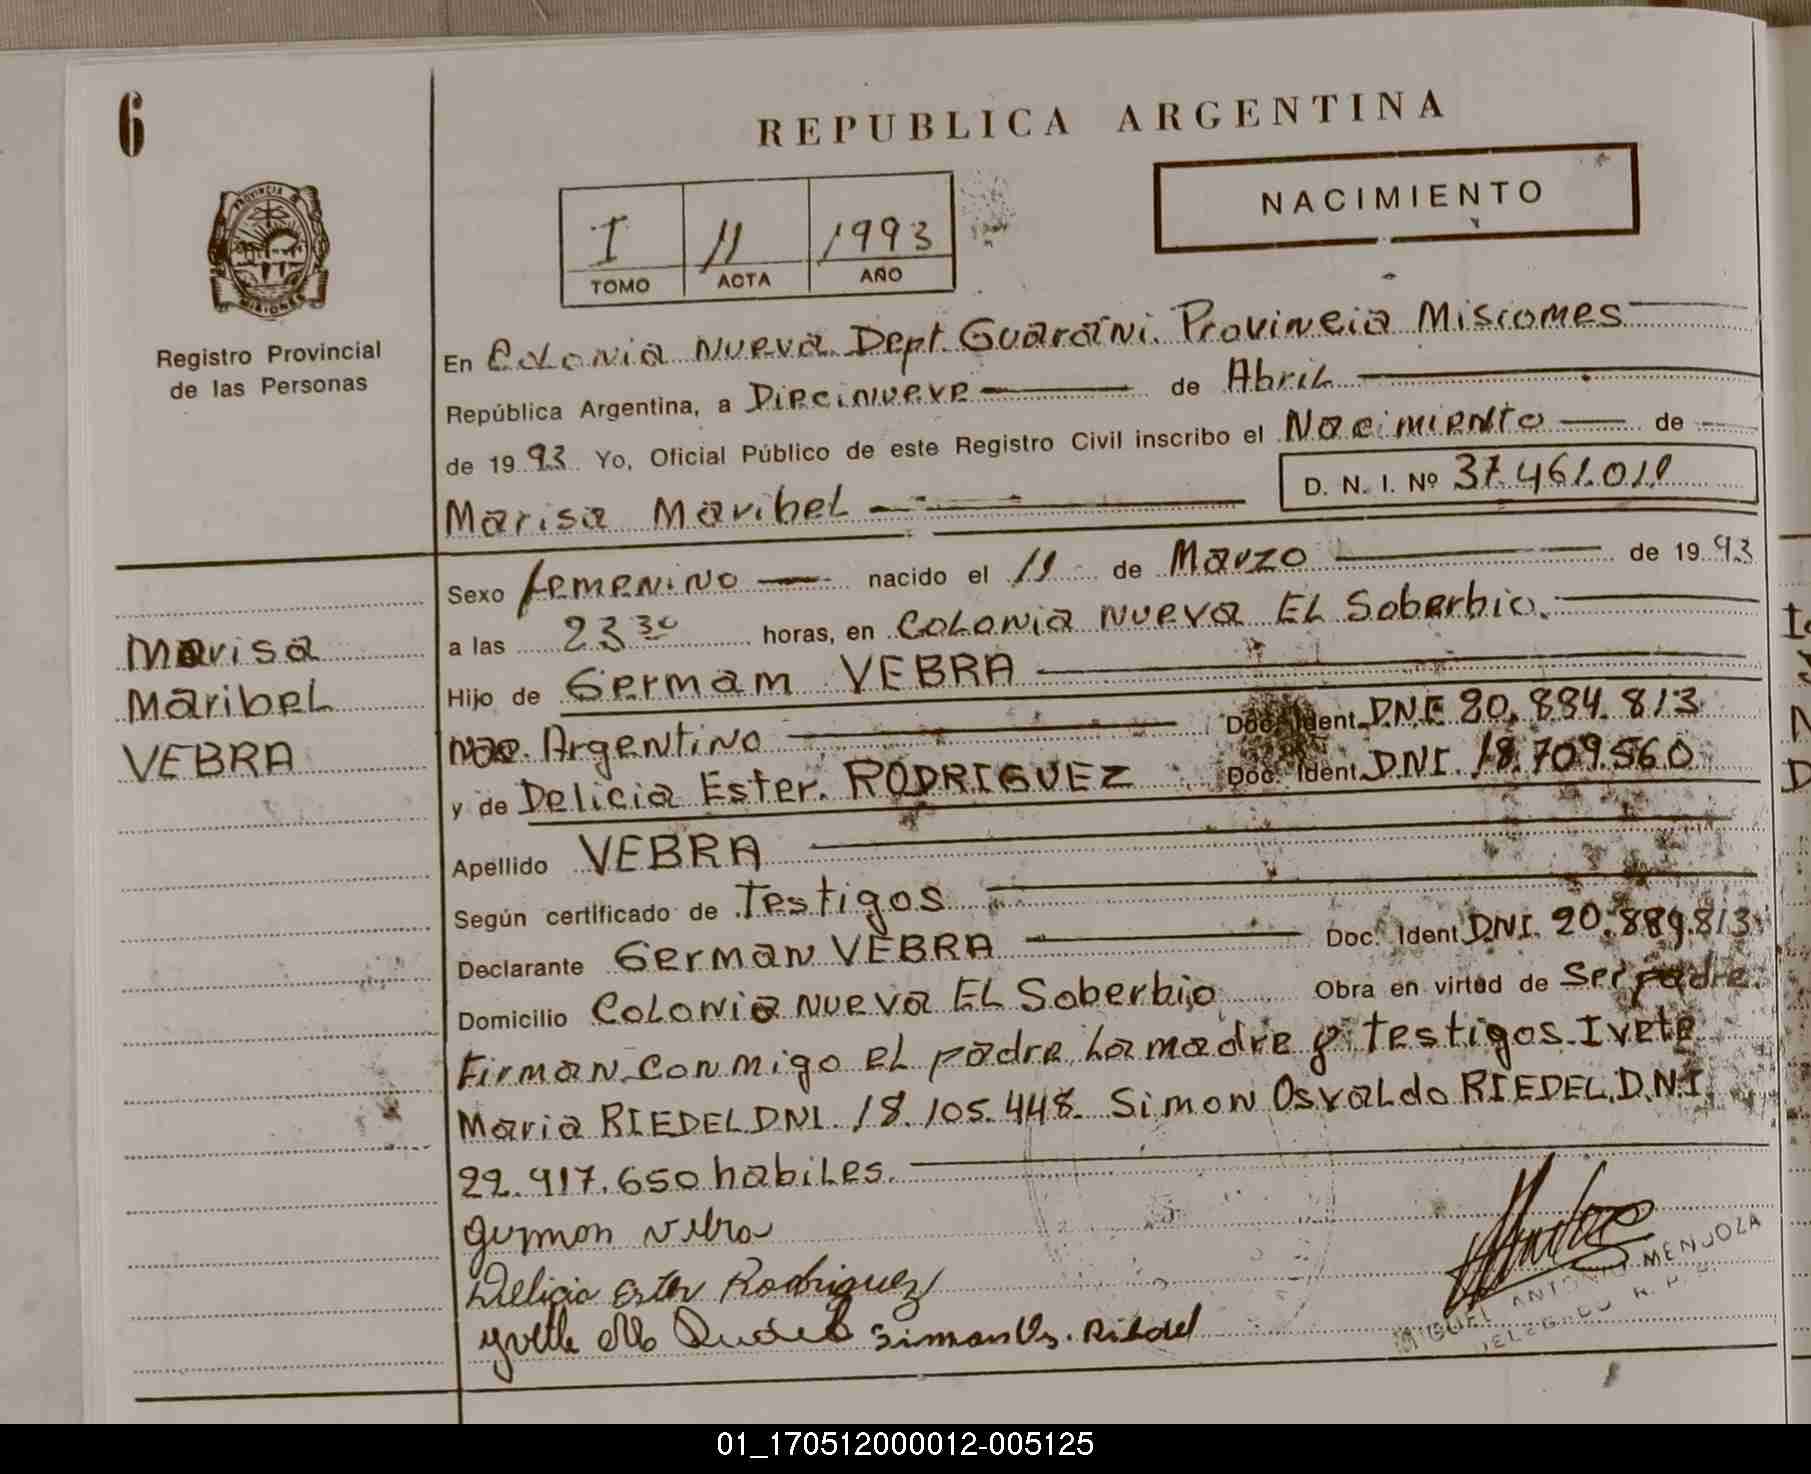 6
REPUBLICA ARGENTINA
PROVINCIA
MISIONES
Registro Provincial
de las Personas
I 11 1993
TOMO ACTA AÑO
NACIMIENTO
En Colonia Nueva Dept. Guarani. Provincia Misiomes
República Argentina, a Diecinueve de Abril
de 1993 Yo, Oficial Público de este Registro Civil inscribo el Nacimiento de
Marisa Maribel D. N. I. Nº 37.461.011
Sexo femenino nacido el 11 de Marzo de 1993
a las 23 30 horas, en Colonia Nueva EL Soberbio.
Hijo de Germam VEBRA
Nac. Argentino Doc. Ident. DNI 20.884.813
y de Delicia Ester. RODRIGUEZ Doc. Ident. DNI. 18.709.560
Apellido VEBRA
Según certificado de Testigos
Declarante German VEBRA Doc. Ident DNI. 20.889.813
Domicilio Colonia Nueva EL Soberbio Obra en virtud de Ser padre.
Firman conmigo el padre, La madre y testigos. Ivete
Maria RIEDEL DNI. 18.105.448. Simon Osvaldo RIEDEL. D.N.I
22.917.650 habiles.
Marisa
Maribel
VEBRA
German Vebra
Delicia Ester Rodriguez
Simon Os. Riedel
MIGUEL ANTONIO MENDOZA
DELEGADO R. P. P.
01_170512000012-005125